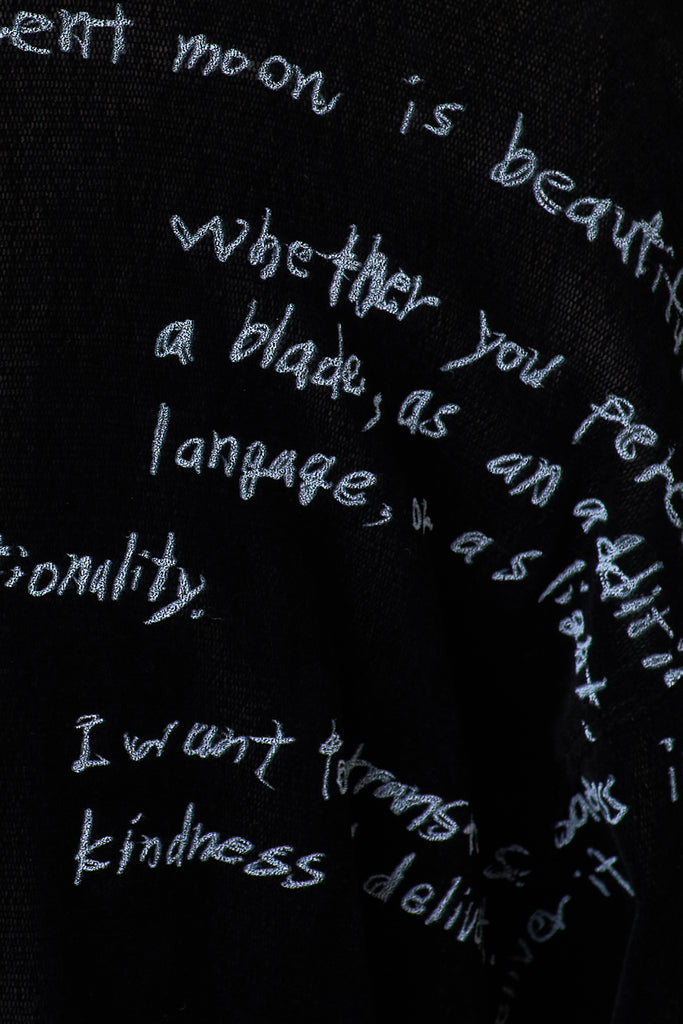 ent moon is beautif
whether you perc
a blade, as an additio
langage, or as light.
ionality.
I want trans
kindness deliver it